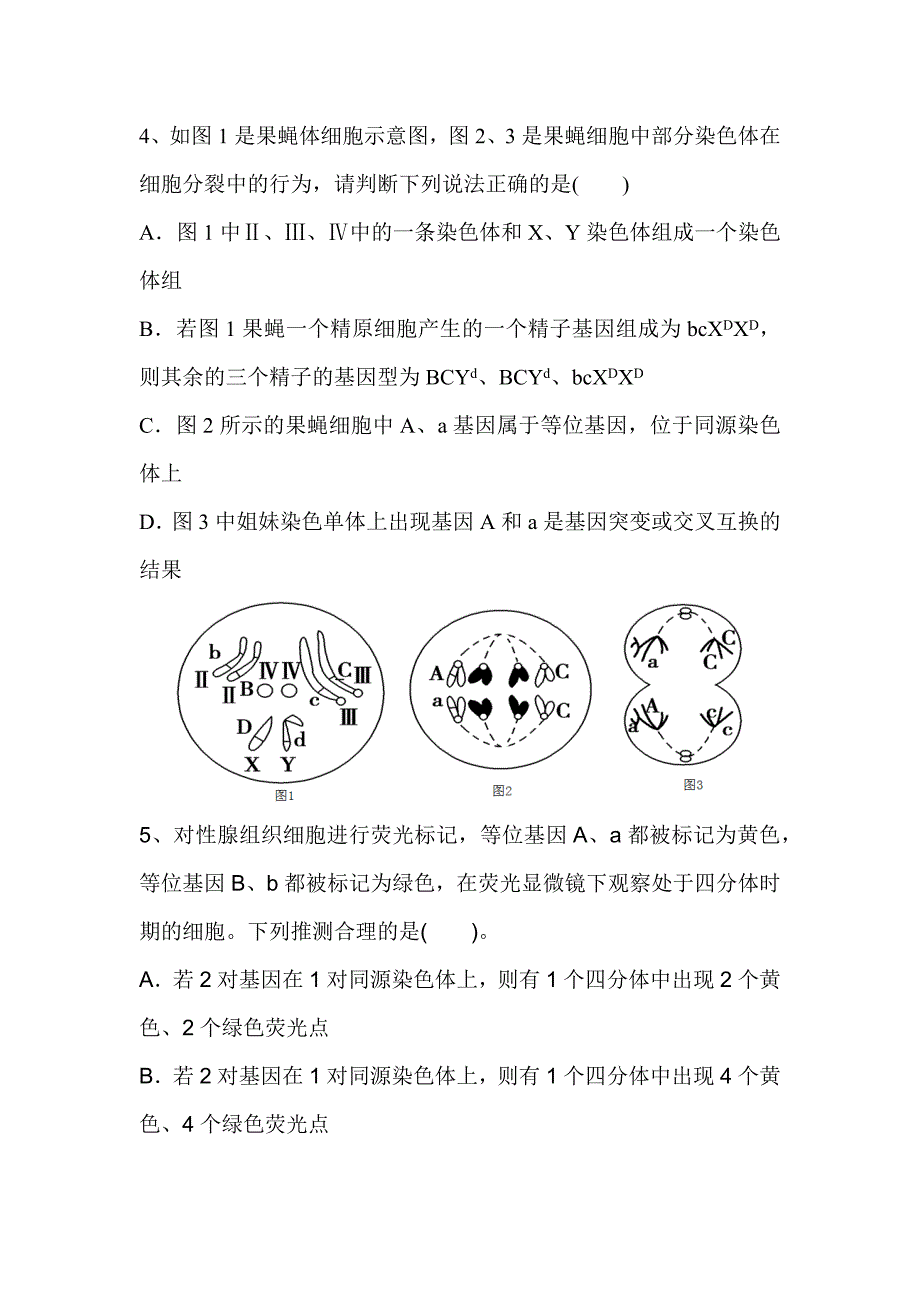 4、如图 1 是果蝇体细胞示意图，图 2、3 是果蝇细胞中部分染色体在
细胞分裂中的行为，请判断下列说法正确的是(　　)
A．图 1 中Ⅱ、Ⅲ、Ⅳ中的一条染色体和 X、Y 染色体组成一个染色
体组
B．若图 1 果蝇一个精原细胞产生的一个精子基因组成为 bcXᴰXᴰ，
则其余的三个精子的基因型为 BCYᵈ、BCYᵈ、bcXᴰXᴰ
C．图 2 所示的果蝇细胞中 A、a 基因属于等位基因，位于同源染色
体上
D．图 3 中姐妹染色单体上出现基因 A 和 a 是基因突变或交叉互换的
结果
b
Ⅱ
Ⅱ
B
Ⅳ
Ⅳ
C
Ⅲ
c
Ⅲ
D
d
X
Y
图1
A
C
a
C
图2
a
C
C
A
a
c
c
图3
5、对性腺组织细胞进行荧光标记，等位基因 A、a 都被标记为黄色，
等位基因 B、b 都被标记为绿色，在荧光显微镜下观察处于四分体时
期的细胞。下列推测合理的是(　　)。
A．若 2 对基因在 1 对同源染色体上，则有 1 个四分体中出现 2 个黄
色、2 个绿色荧光点
B．若 2 对基因在 1 对同源染色体上，则有 1 个四分体中出现 4 个黄
色、4 个绿色荧光点